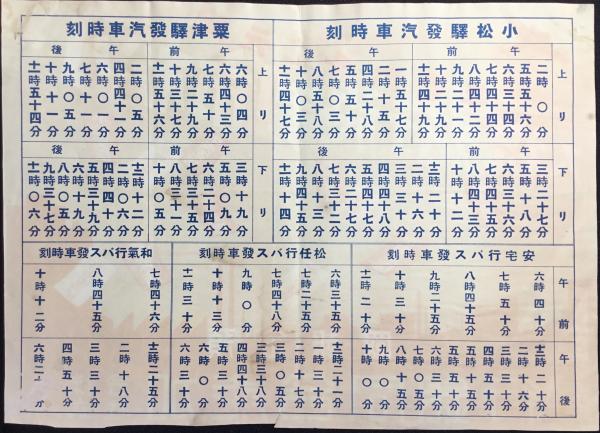 小松驛發汽車時刻
上リ
午前
二時〇分
五時五十六分
六時三十四分
八時四十二分
九時二十一分
十一時四十分
午後
一時五十七分
二時十五分
四時二十八分
五時五十分
七時〇三分
八時五十八分
十時〇三分
十一時四十七分
下リ
午前
三時二十七分
五時十八分
六時三十六分
八時四十三分
十時十二分
午後
十二時二十一分
二時十六分
三時三十分
四時四十八分
五時四十四分
六時二十七分
八時十三分
九時四十五分
十一時十四分
粟津驛發汽車時刻
上リ
午前
六時〇四分
六時四十三分
七時五十分
九時二十九分
十時三十七分
十一時五十六分
午後
二時〇五分
四時四十一分
六時〇一分
七時十一分
九時〇五分
十時十一分
十一時五十四分
下リ
午前
三時十九分
五時〇九分
六時二十四分
八時三十一分
十時〇五分
午後
十二時十二分
二時〇六分
四時四十分
五時三十九分
六時十九分
八時〇五分
九時三十七分
十一時〇六分
安宅行バス發車時刻
午前
六時四十分
七時五十分
八時四十分
九時二十五分
十時三十分
十一時二十分
午後
十二時二十分
二時二十六分
三時三十分
四時五十分
五時十五分
五時五十分
六時三十分
七時〇五分
八時十五分
九時〇分
十時〇分
松任行バス發車時刻
六時三十五分
七時二十五分
七時四十八分
九時〇分
十時十三分
十一時三十分
十二時二十一分
一時三十分
二時十七分
三時〇五分
三時三十八分
四時四十八分
五時三十分
六時〇分
六時三十分
和氣行バス發車時刻
七時四十分
八時四十五分
十時十二分
十二時二十五分
二時十八分
三時三十分
四時五十分
六時二 分